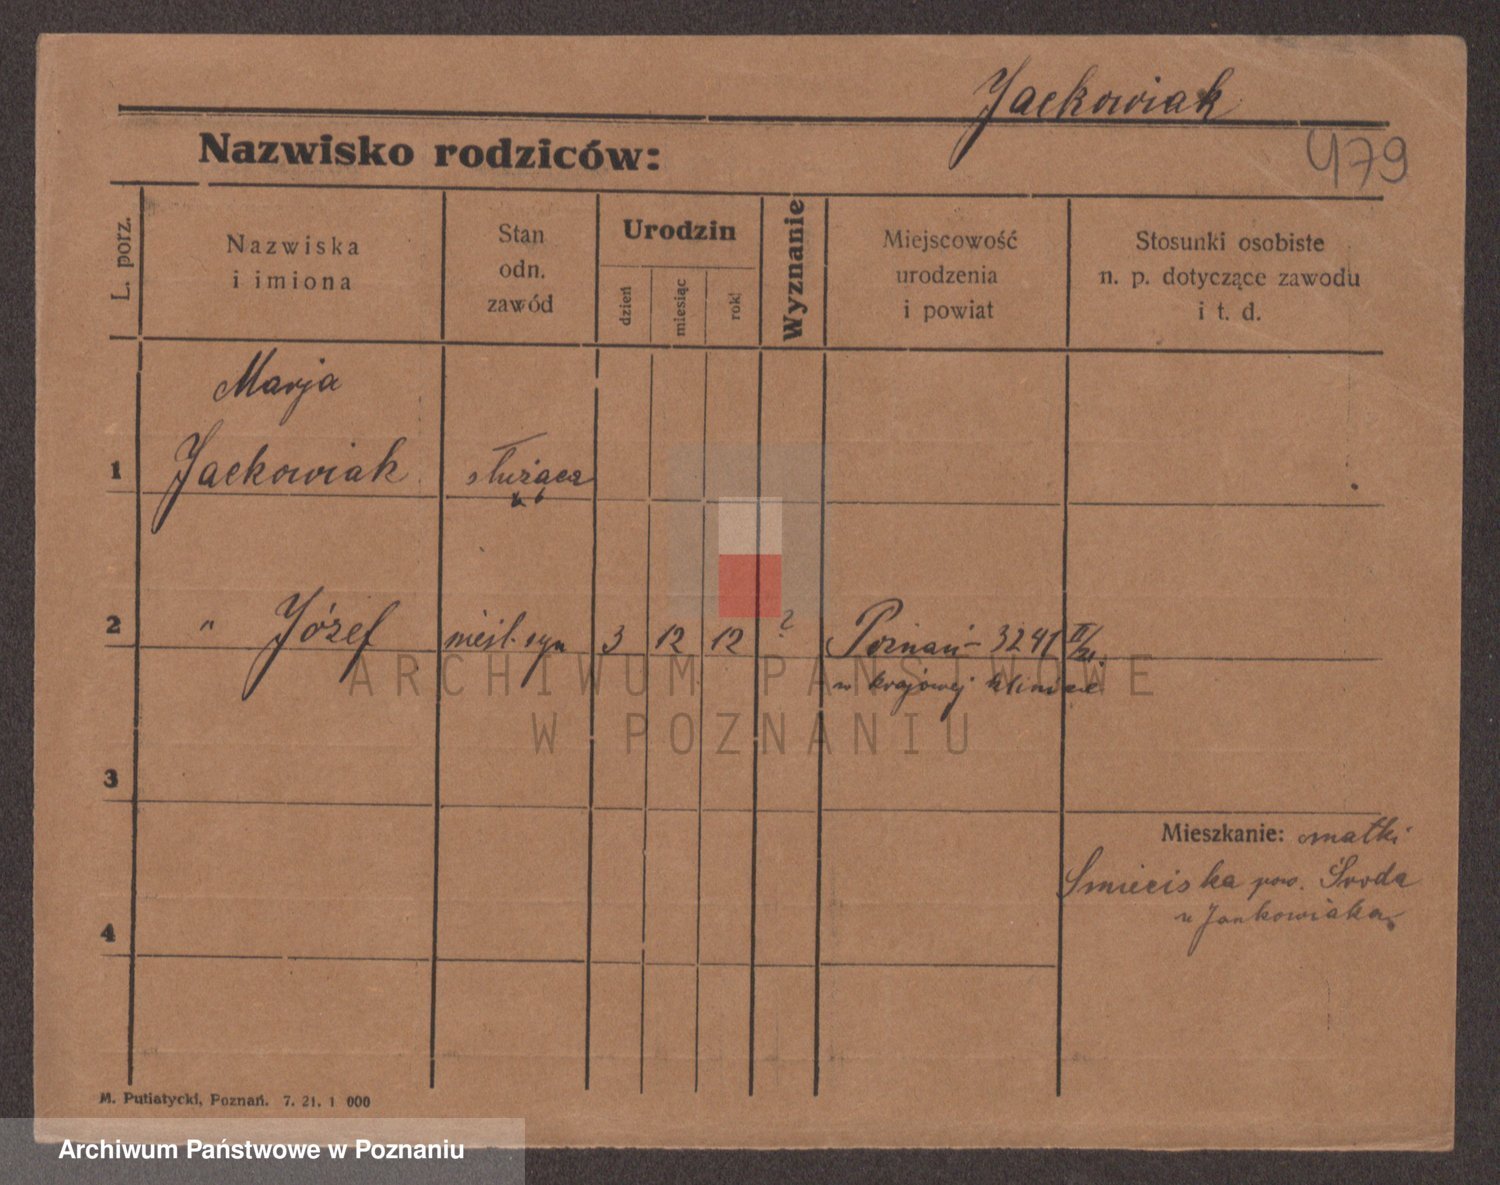 Jackowiak
Nazwisko rodziców:
479
L. porz.
Nazwiska
i imiona
Stan
odn.
zawód
Urodzin
dzień
miesiąc
rok
Wyznanie
Miejscowość
urodzenia
i powiat
Stosunki osobiste
n. p. dotyczące zawodu
i t. d.
Marja
1 Jackowiak służąca
2 " Józef nieśl. syn 3 12 12 ? Poznań - 3241 II/21.
w krajowej klinice
ARCHIWUM PAŃSTWOWE
W POZNANIU
3
Mieszkanie: matki
Śmieciska pow. Środa
4
u Jankowiaka
M. Putiatycki, Poznań. 7. 21. 1 000
Archiwum Państwowe w Poznaniu